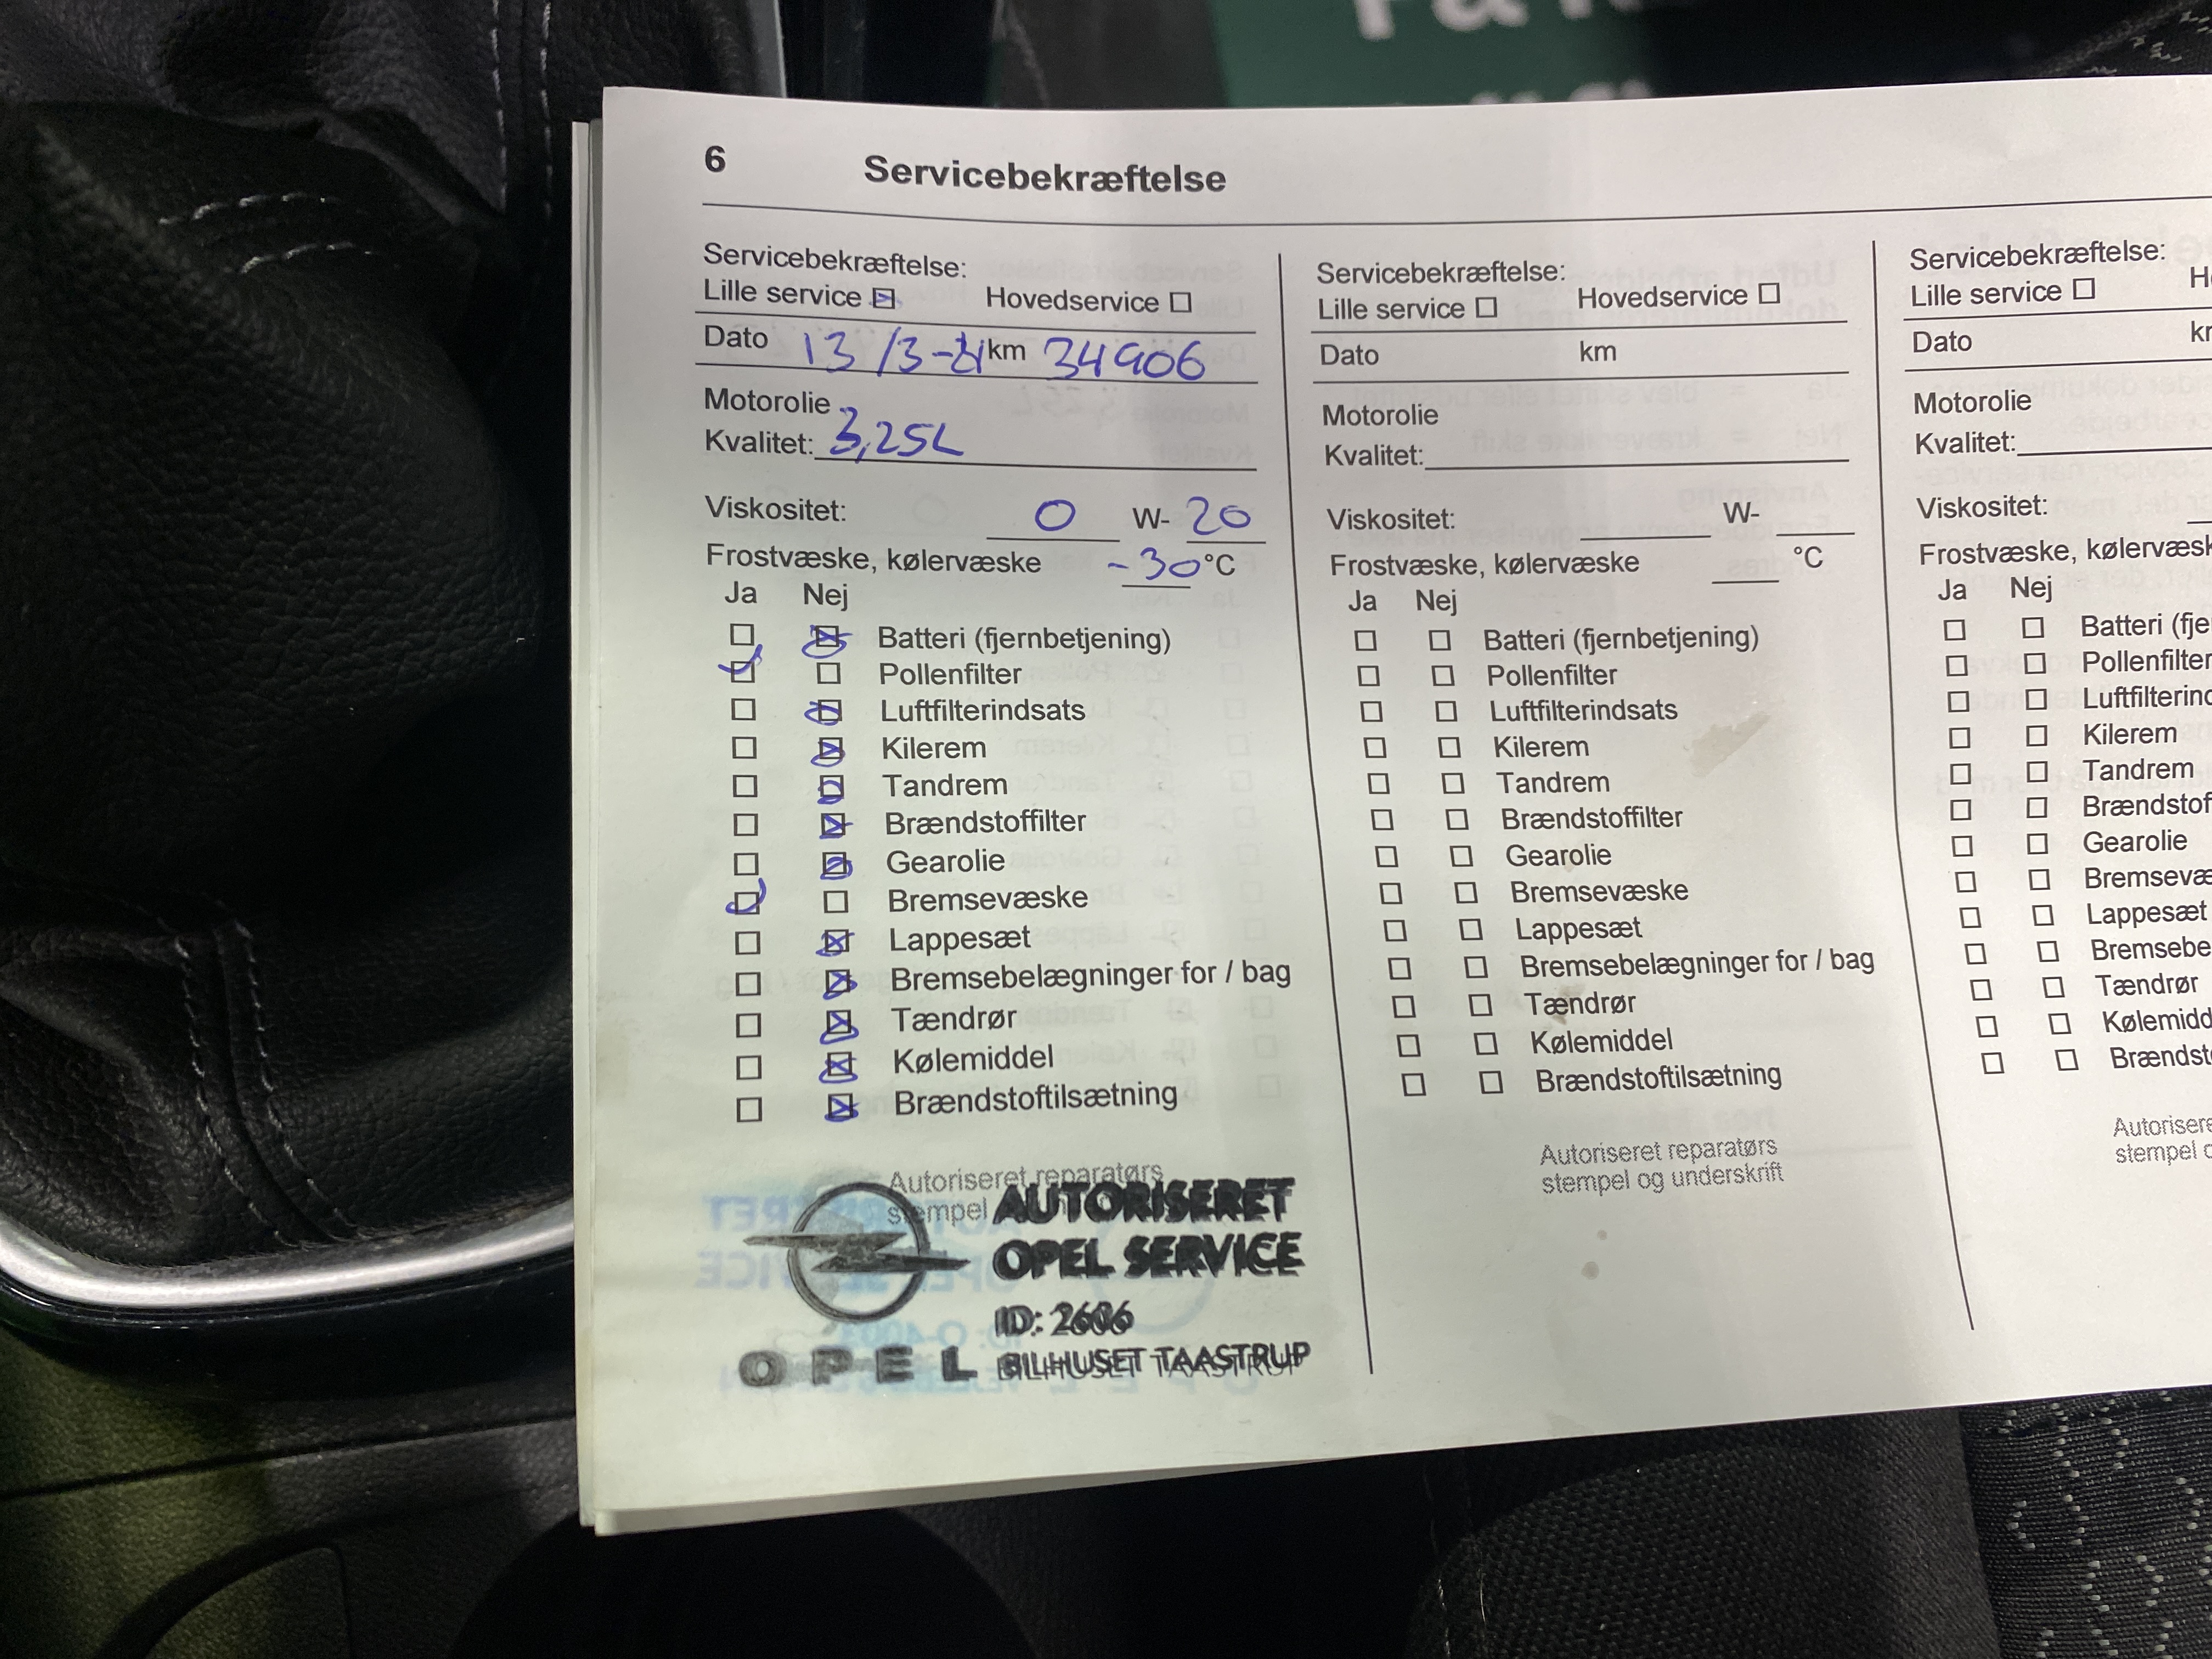 6 Servicebekræftelse
Servicebekræftelse:
Lille service ☒ Hovedservice ☐
Dato 13/3-21 km 34906
Motorolie
Kvalitet: 3,25L
Viskositet: 0 W- 20
Frostvæske, kølervæske -30 °C
Ja Nej
Batteri (fjernbetjening)
Pollenfilter
Luftfilterindsats
Kilerem
Tandrem
Brændstoffilter
Gearolie
Bremsevæske
Lappesæt
Bremsebelægninger for / bag
Tændrør
Kølemiddel
Brændstoftilsætning
Autoriseret reparatørs
stempel
AUTORISERET
OPEL SERVICE
ID: 2606
OPEL BILHUSET TAASTRUP
Servicebekræftelse:
Lille service ☐ Hovedservice ☐
Dato km
Motorolie
Kvalitet:
Viskositet: W-
Frostvæske, kølervæske °C
Ja Nej
Batteri (fjernbetjening)
Pollenfilter
Luftfilterindsats
Kilerem
Tandrem
Brændstoffilter
Gearolie
Bremsevæske
Lappesæt
Bremsebelægninger for / bag
Tændrør
Kølemiddel
Brændstoftilsætning
Autoriseret reparatørs
stempel og underskrift
Servicebekræftelse:
Lille service ☐
Dato
Motorolie
Kvalitet:
Viskositet:
Frostvæske, kølervæsk
Ja Nej
Batteri (fje
Pollenfilter
Luftfilterind
Kilerem
Tandrem
Brændstof
Gearolie
Bremsevæ
Lappesæt
Bremsebe
Tændrør
Kølemidd
Brændst
Autorisere
stempel o